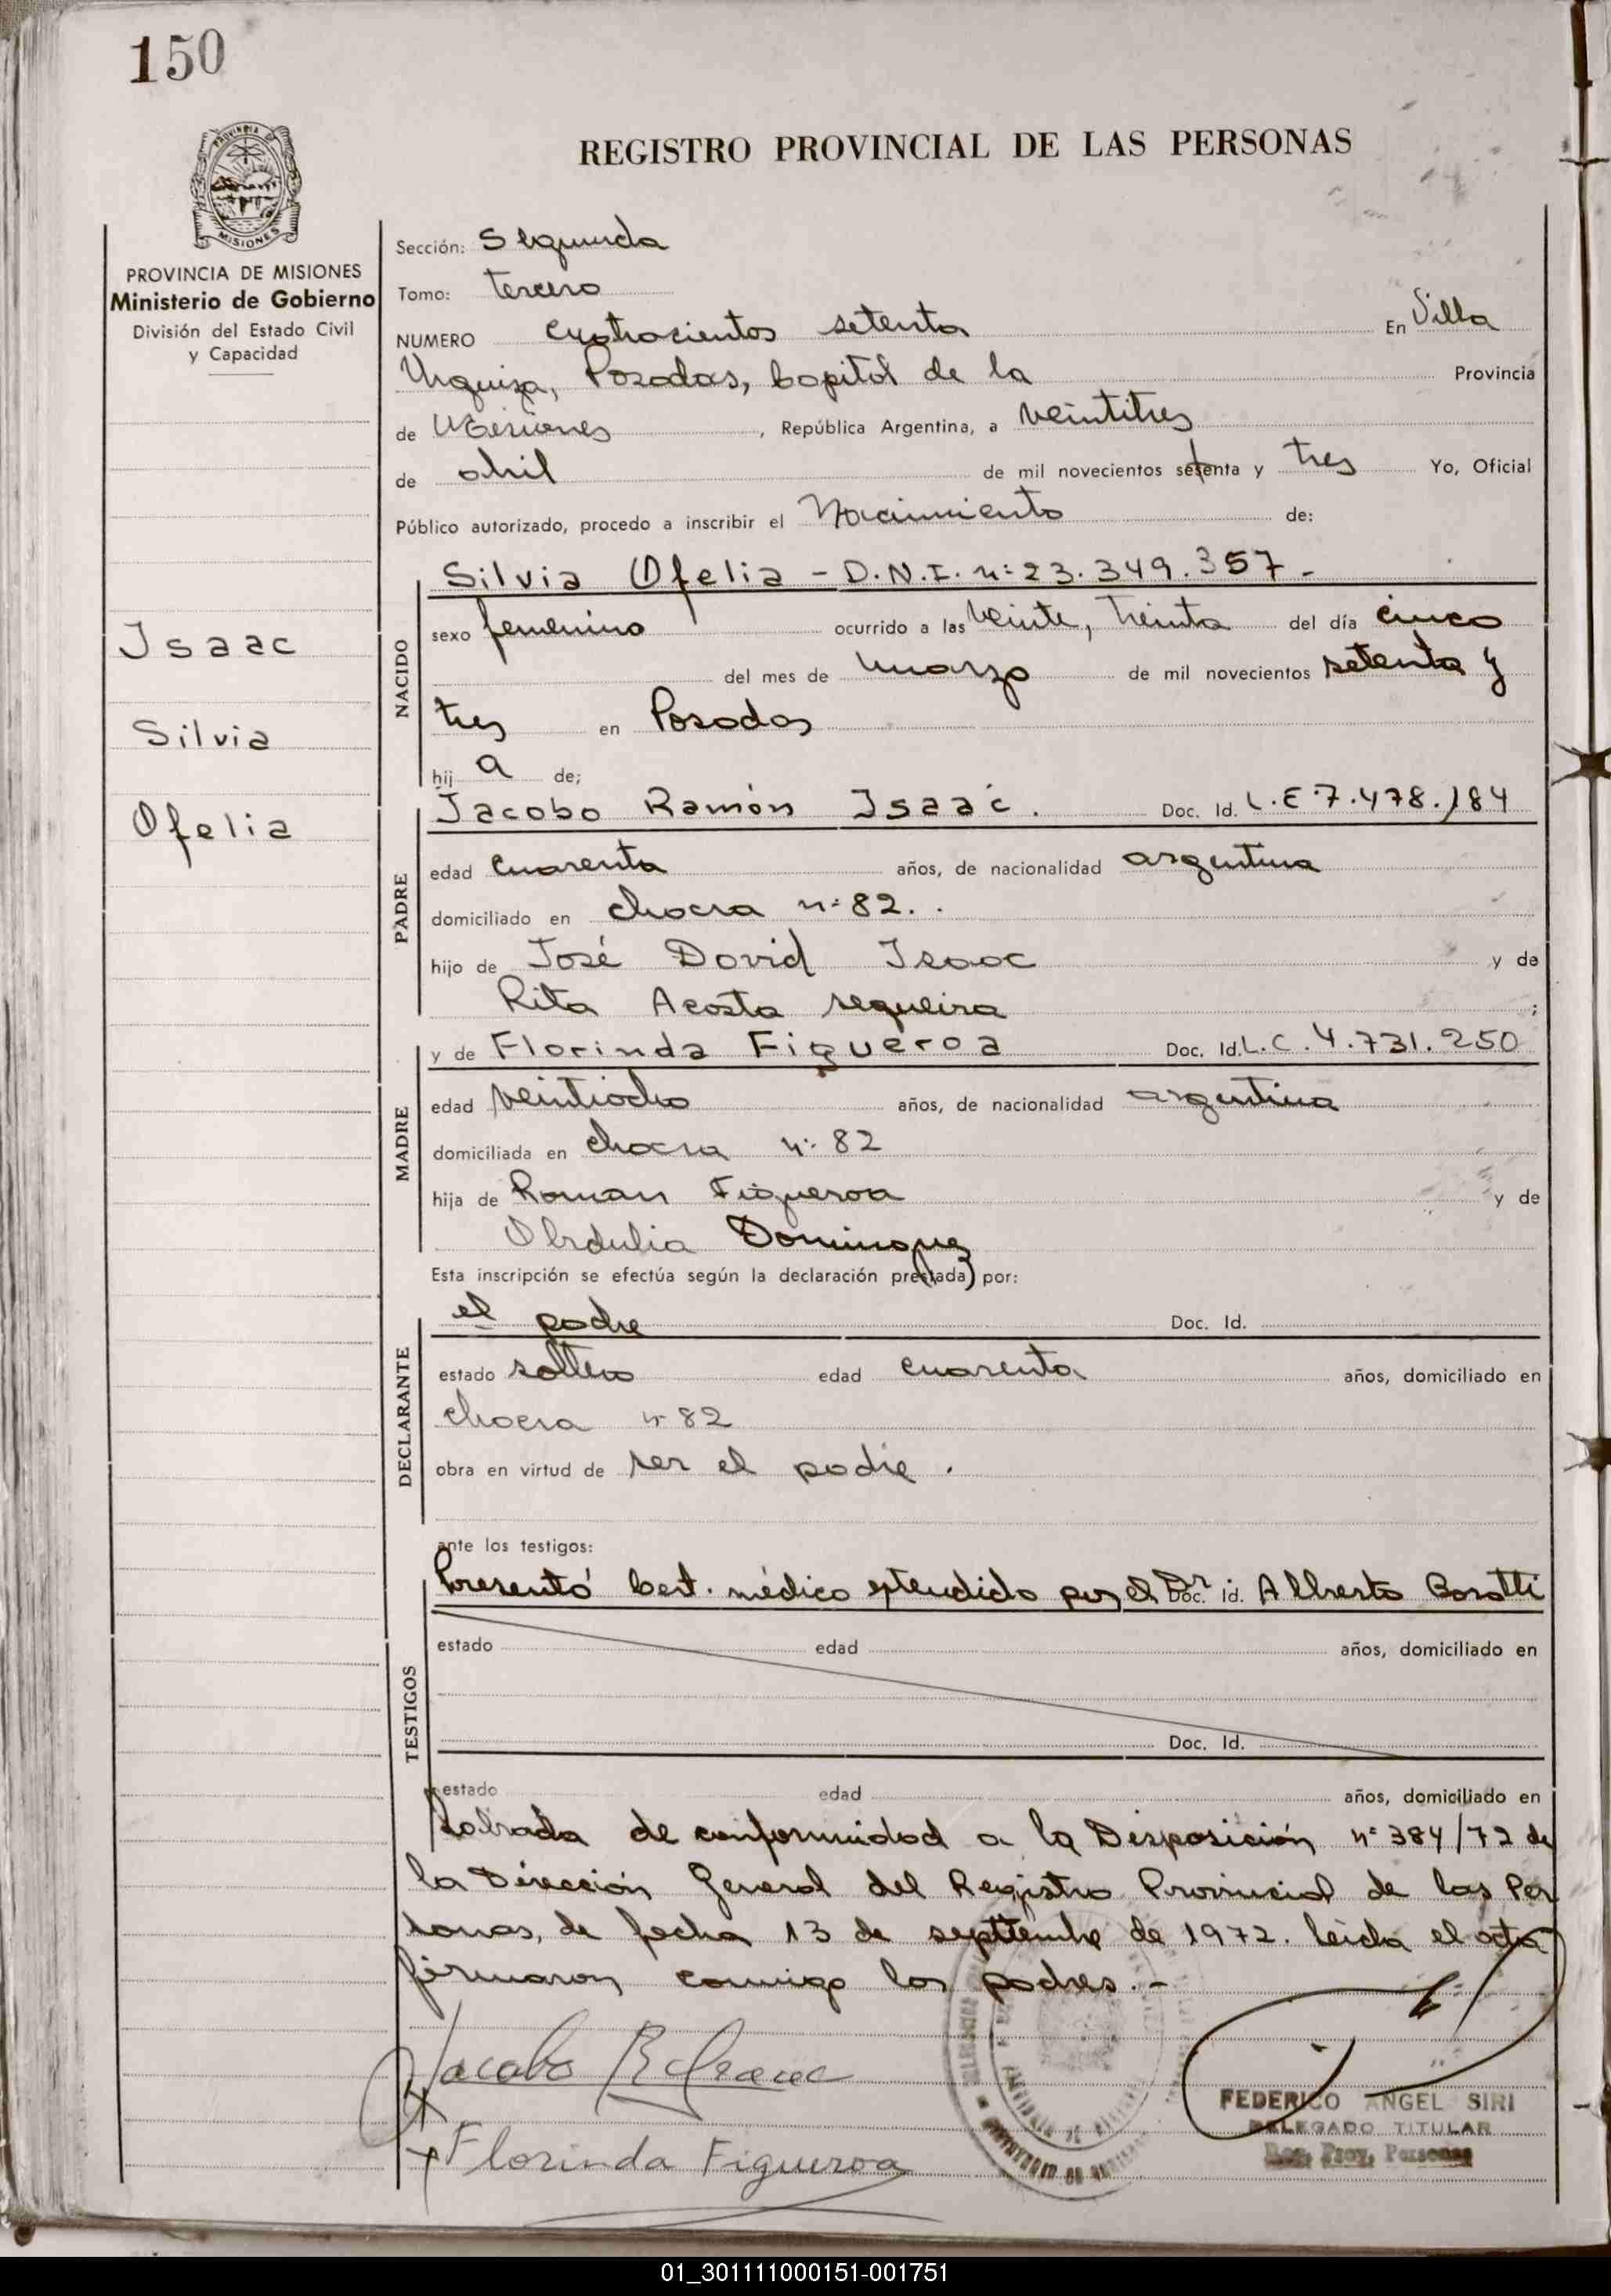 150
REGISTRO PROVINCIAL DE LAS PERSONAS
PROVINCIA DE MISIONES
MISIONES
PROVINCIA DE MISIONES
Ministerio de Gobierno
División del Estado Civil
y Capacidad
Isaac
Silvia
Ofelia
Sección: Segunda
Tomo: tercero
NUMERO cuatrocientos setenta En Villa
Urquiza, Posadas, Capital de la Provincia
de Misiones, República Argentina, a veintitres
de abril de mil novecientos setenta y tres Yo, Oficial
Público autorizado, procedo a inscribir el Nacimiento de:
Silvia Ofelia - D.N.I. nº 23.349.357 -
NACIDO
sexo femenino ocurrido a las veinte, treinta del día cinco
del mes de marzo de mil novecientos setenta y
tres en Posadas
hij a de;
PADRE
Jacobo Ramón Isaac. Doc. Id. L.E 7.478.184
edad cuarenta años, de nacionalidad argentina
domiciliado en chacra nº 82.
hijo de José David Isaac y de
Rita Acosta sequeira ;
MADRE
y de Florinda Figueroa Doc. Id. L.C. 4.731.250
edad veintiocho años, de nacionalidad argentina
domiciliada en chacra nº 82
hija de Roman Figueroa y de
Obdulia Dominguez
Esta inscripción se efectúa según la declaración prestada por:
DECLARANTE
el padre Doc. Id.
estado soltero edad cuarenta años, domiciliado en
chacra nº 82
obra en virtud de ser el padre.
ante los testigos:
TESTIGOS
Presentó Cert. médico extendido por el Dr. Doc. id. Alberto
estado edad años, domiciliado en
Doc. Id.
estado edad años, domiciliado en
Labrada de conformidad a la Disposición nº 384/72 de
la Dirección General del Registro Provincial de las Per
sonas, de fecha 13 de septtiembre de 1972. leída el acta
firmaron conmigo los padres. -
Jacobo R Isaac
Florinda Figueroa
FEDERICO ANGEL SIRI
DELEGADO TITULAR
Reg. Prov. Personas
01_301111000151-001751